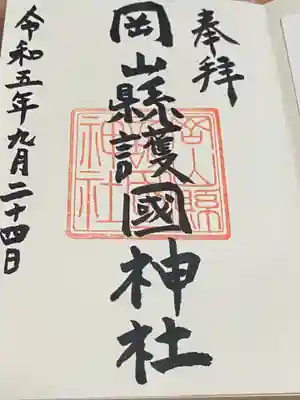 奉拝
岡山縣護國神社
令和五年九月二十四日
岡山縣
神社